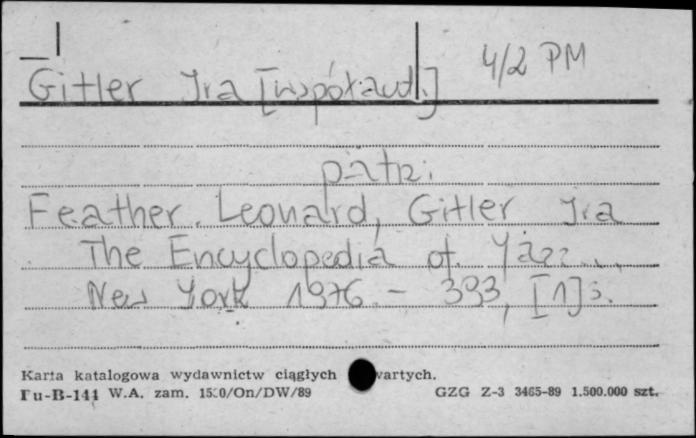 4/2 PM
Gitler Ira [współaut.]
patrz:
Feather Leonard, Gitler Ira
The Encyclopedia of Yazz...
New York 1976. - 393, [1] s.
Karta katalogowa wydawnictw ciągłych wartych.
Pu-B-141 W.A. zam. 1530/On/DW/89 GZG Z-3 3465-89 1.500.000 szt.